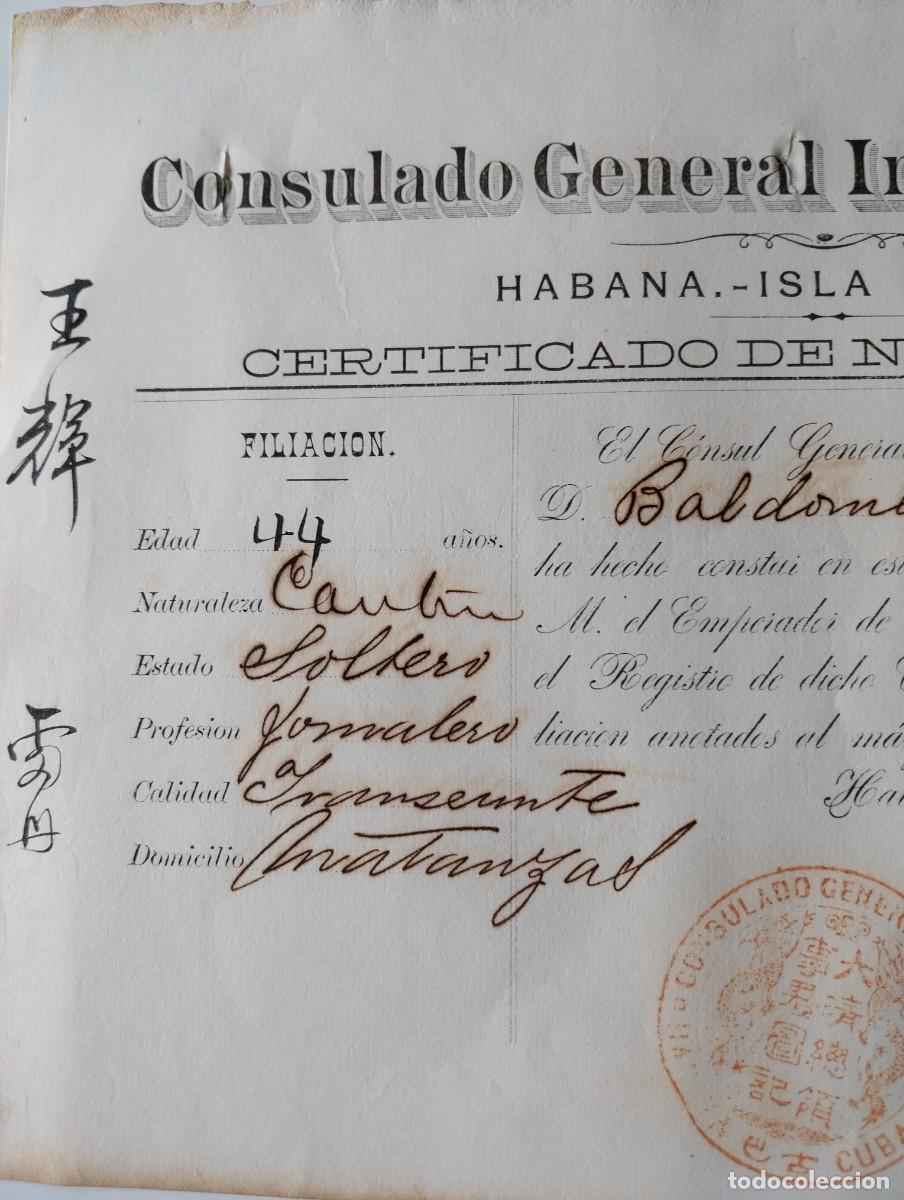 Consulado General In
HABANA.-ISLA
CERTIFICADO DE N
王輝
FILIACION.
Edad 44 años.
Naturaleza Canton
Estado Soltero
Profesion Jornalero
Calidad Transeunte
Domicilio Matanzas
El Cónsul General
D. Baldome
ha hecho constar en es
M. el Emperador de
el Registro de dicho
liacion anotados al má
Ha
CONSULADO GENER
大清
總領
圖記
古巴
CUBA
todocoleccion